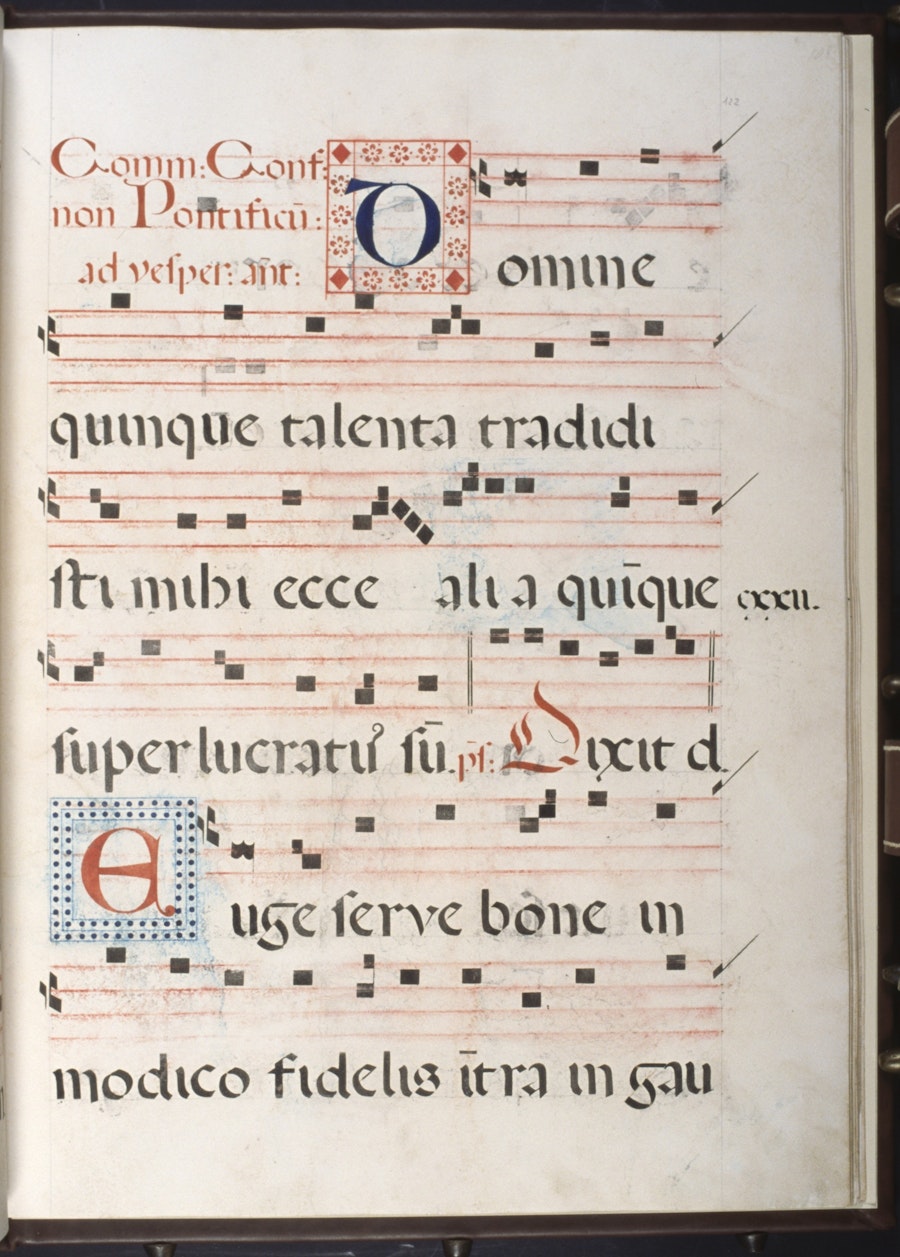 122
Comm: Conf:
non Pontificū:
ad vesper: ān̄t:
Domine
quinque talenta tradidi
sti mihi ecce alia quīque
cxxii.
superlucratuꝰ sū. ps: Dixit d.
Euge serve bone in
modico fidelis ītra in gau